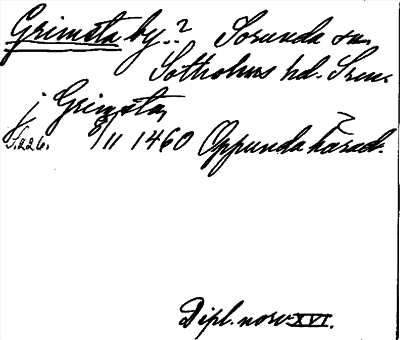 Grimsta by.? Sorunda sn.
Sotholms hd. Srm.
j Grimsta,
S.226. 8/11 1460 Oppunda härad.
Dipl. norv. XVI.